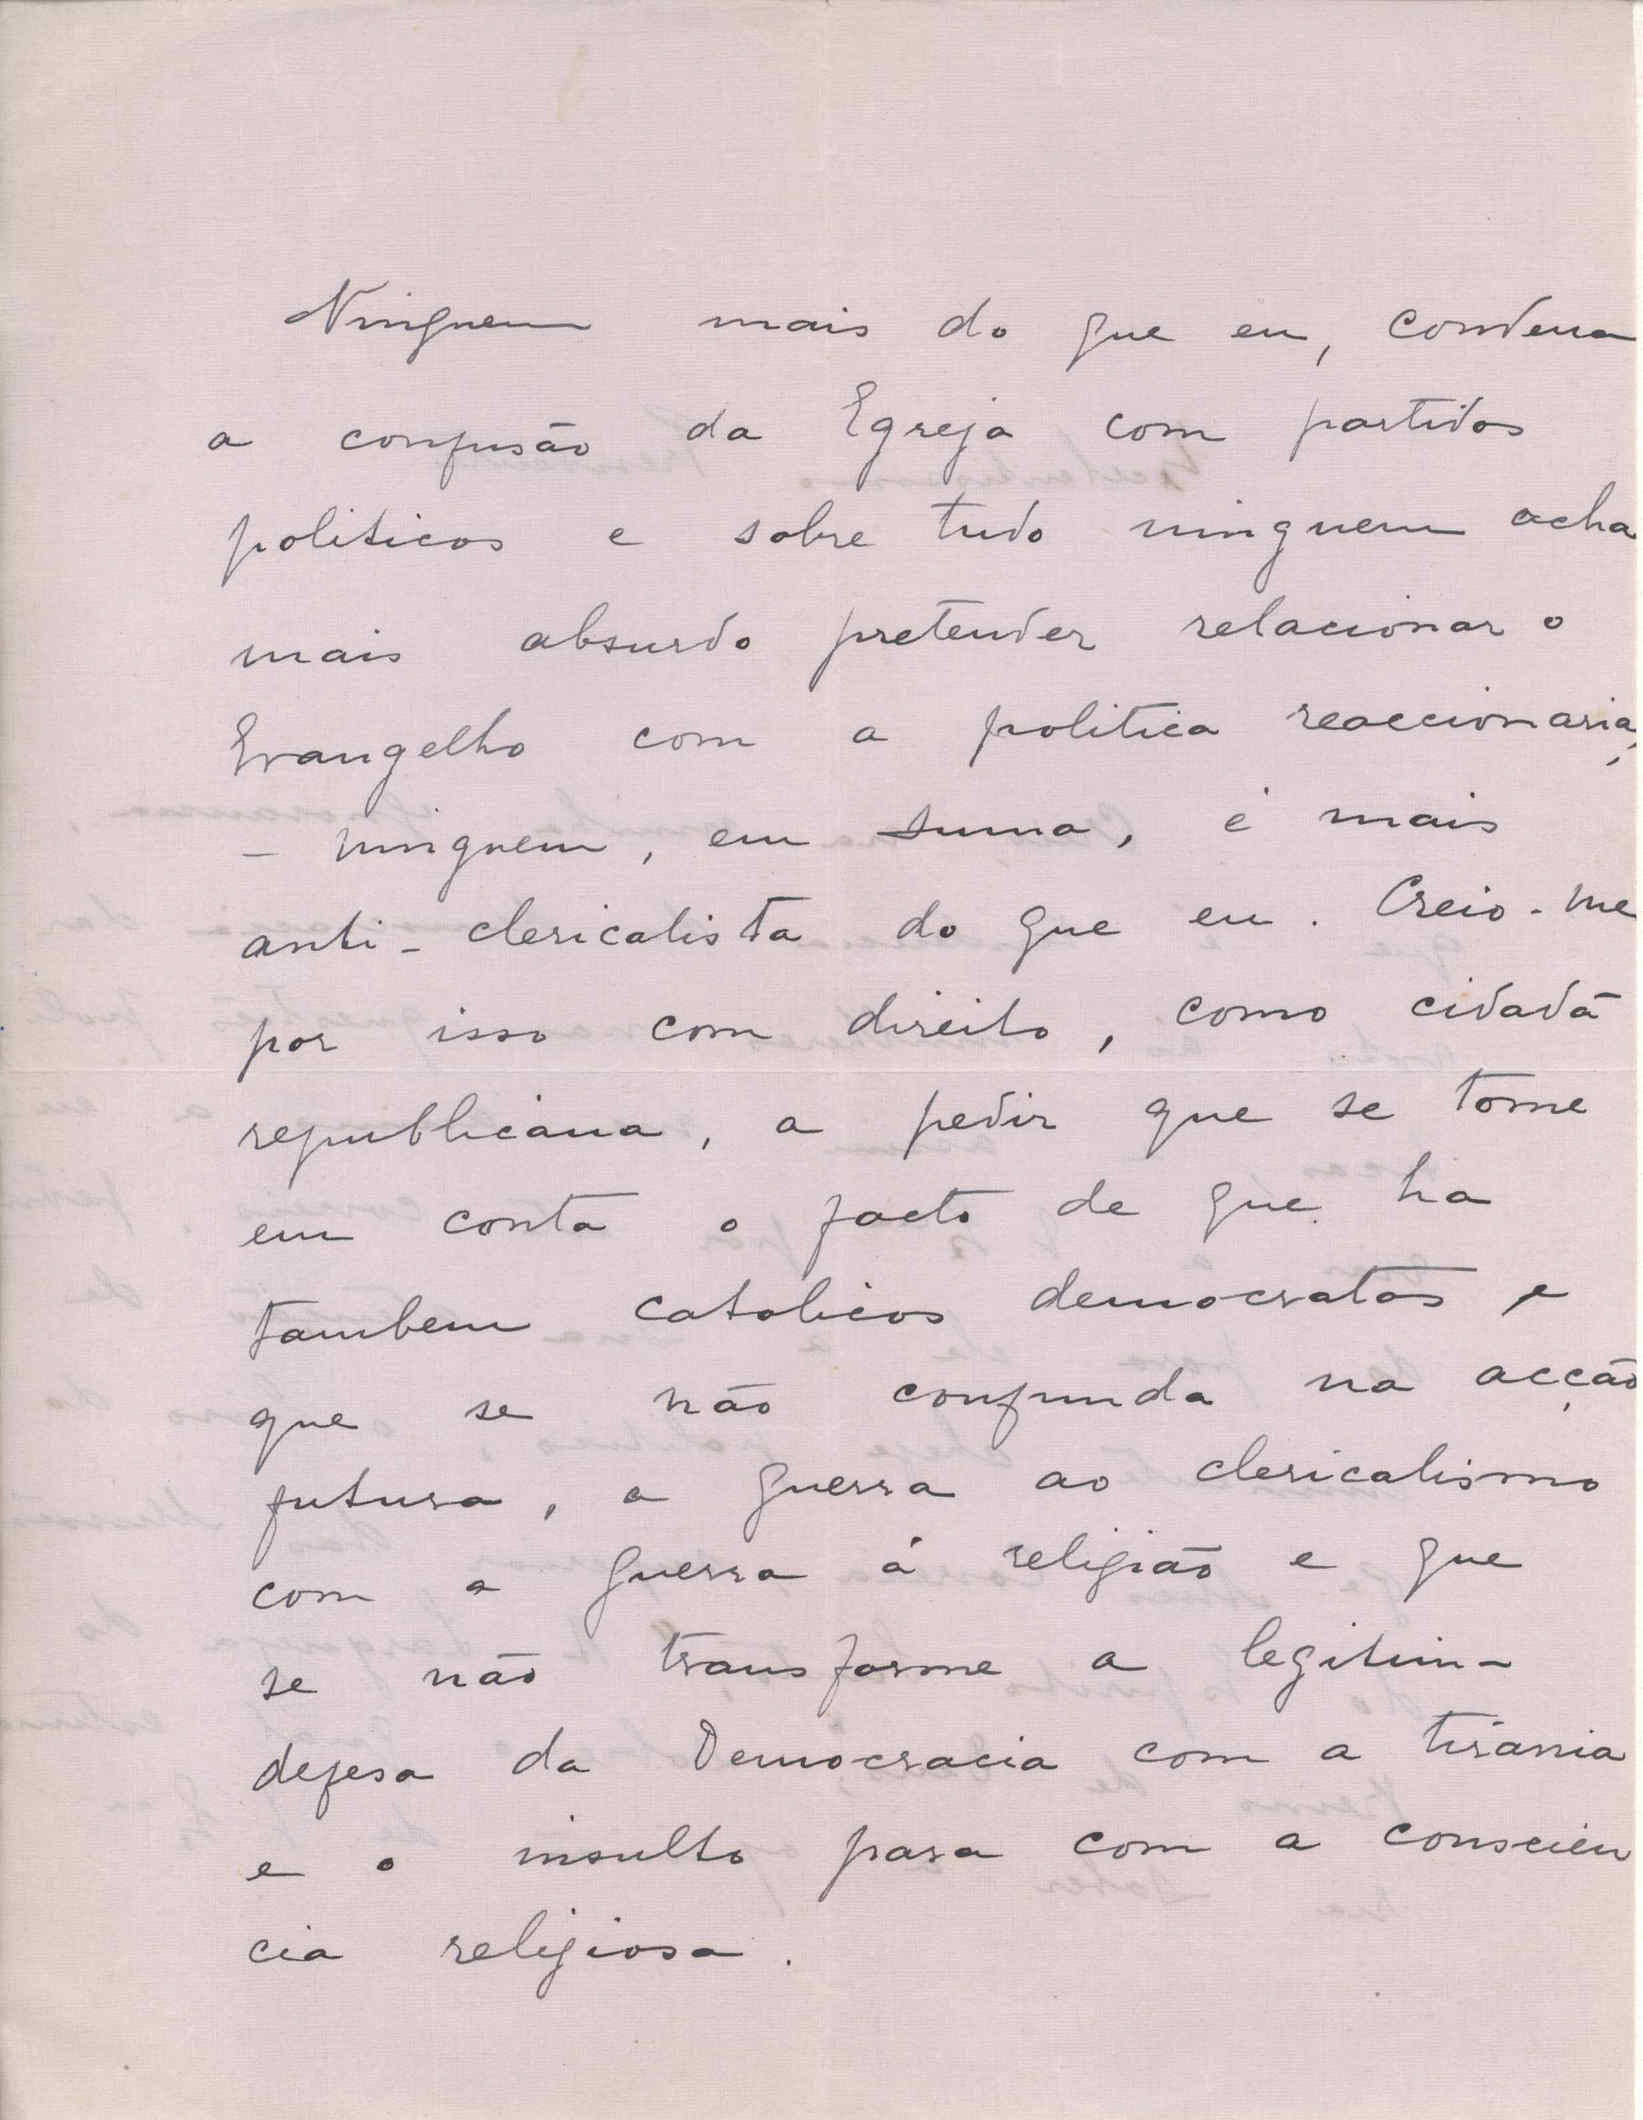 Ninguem mais do que eu, condena
a confusão da Egreja com partidos
politicos e sobre tudo ninguem acha
mais absurdo pretender relacionar o
Evangelho com a politica reaccionaria,
– ninguem, em suma, é mais
anti-clericalista do que eu. Creio-me
por isso com direito, como cidadã
republicana, a pedir que se tome
em conta o facto de que ha
tambem catolicos democratas e
que se não confunda na acção
futura, a guerra ao clericalismo
com a guerra á religião e que
se não transforme a legitim-
defesa da Democracia com a tirania
e o insulto para com a conscien
cia religiosa.